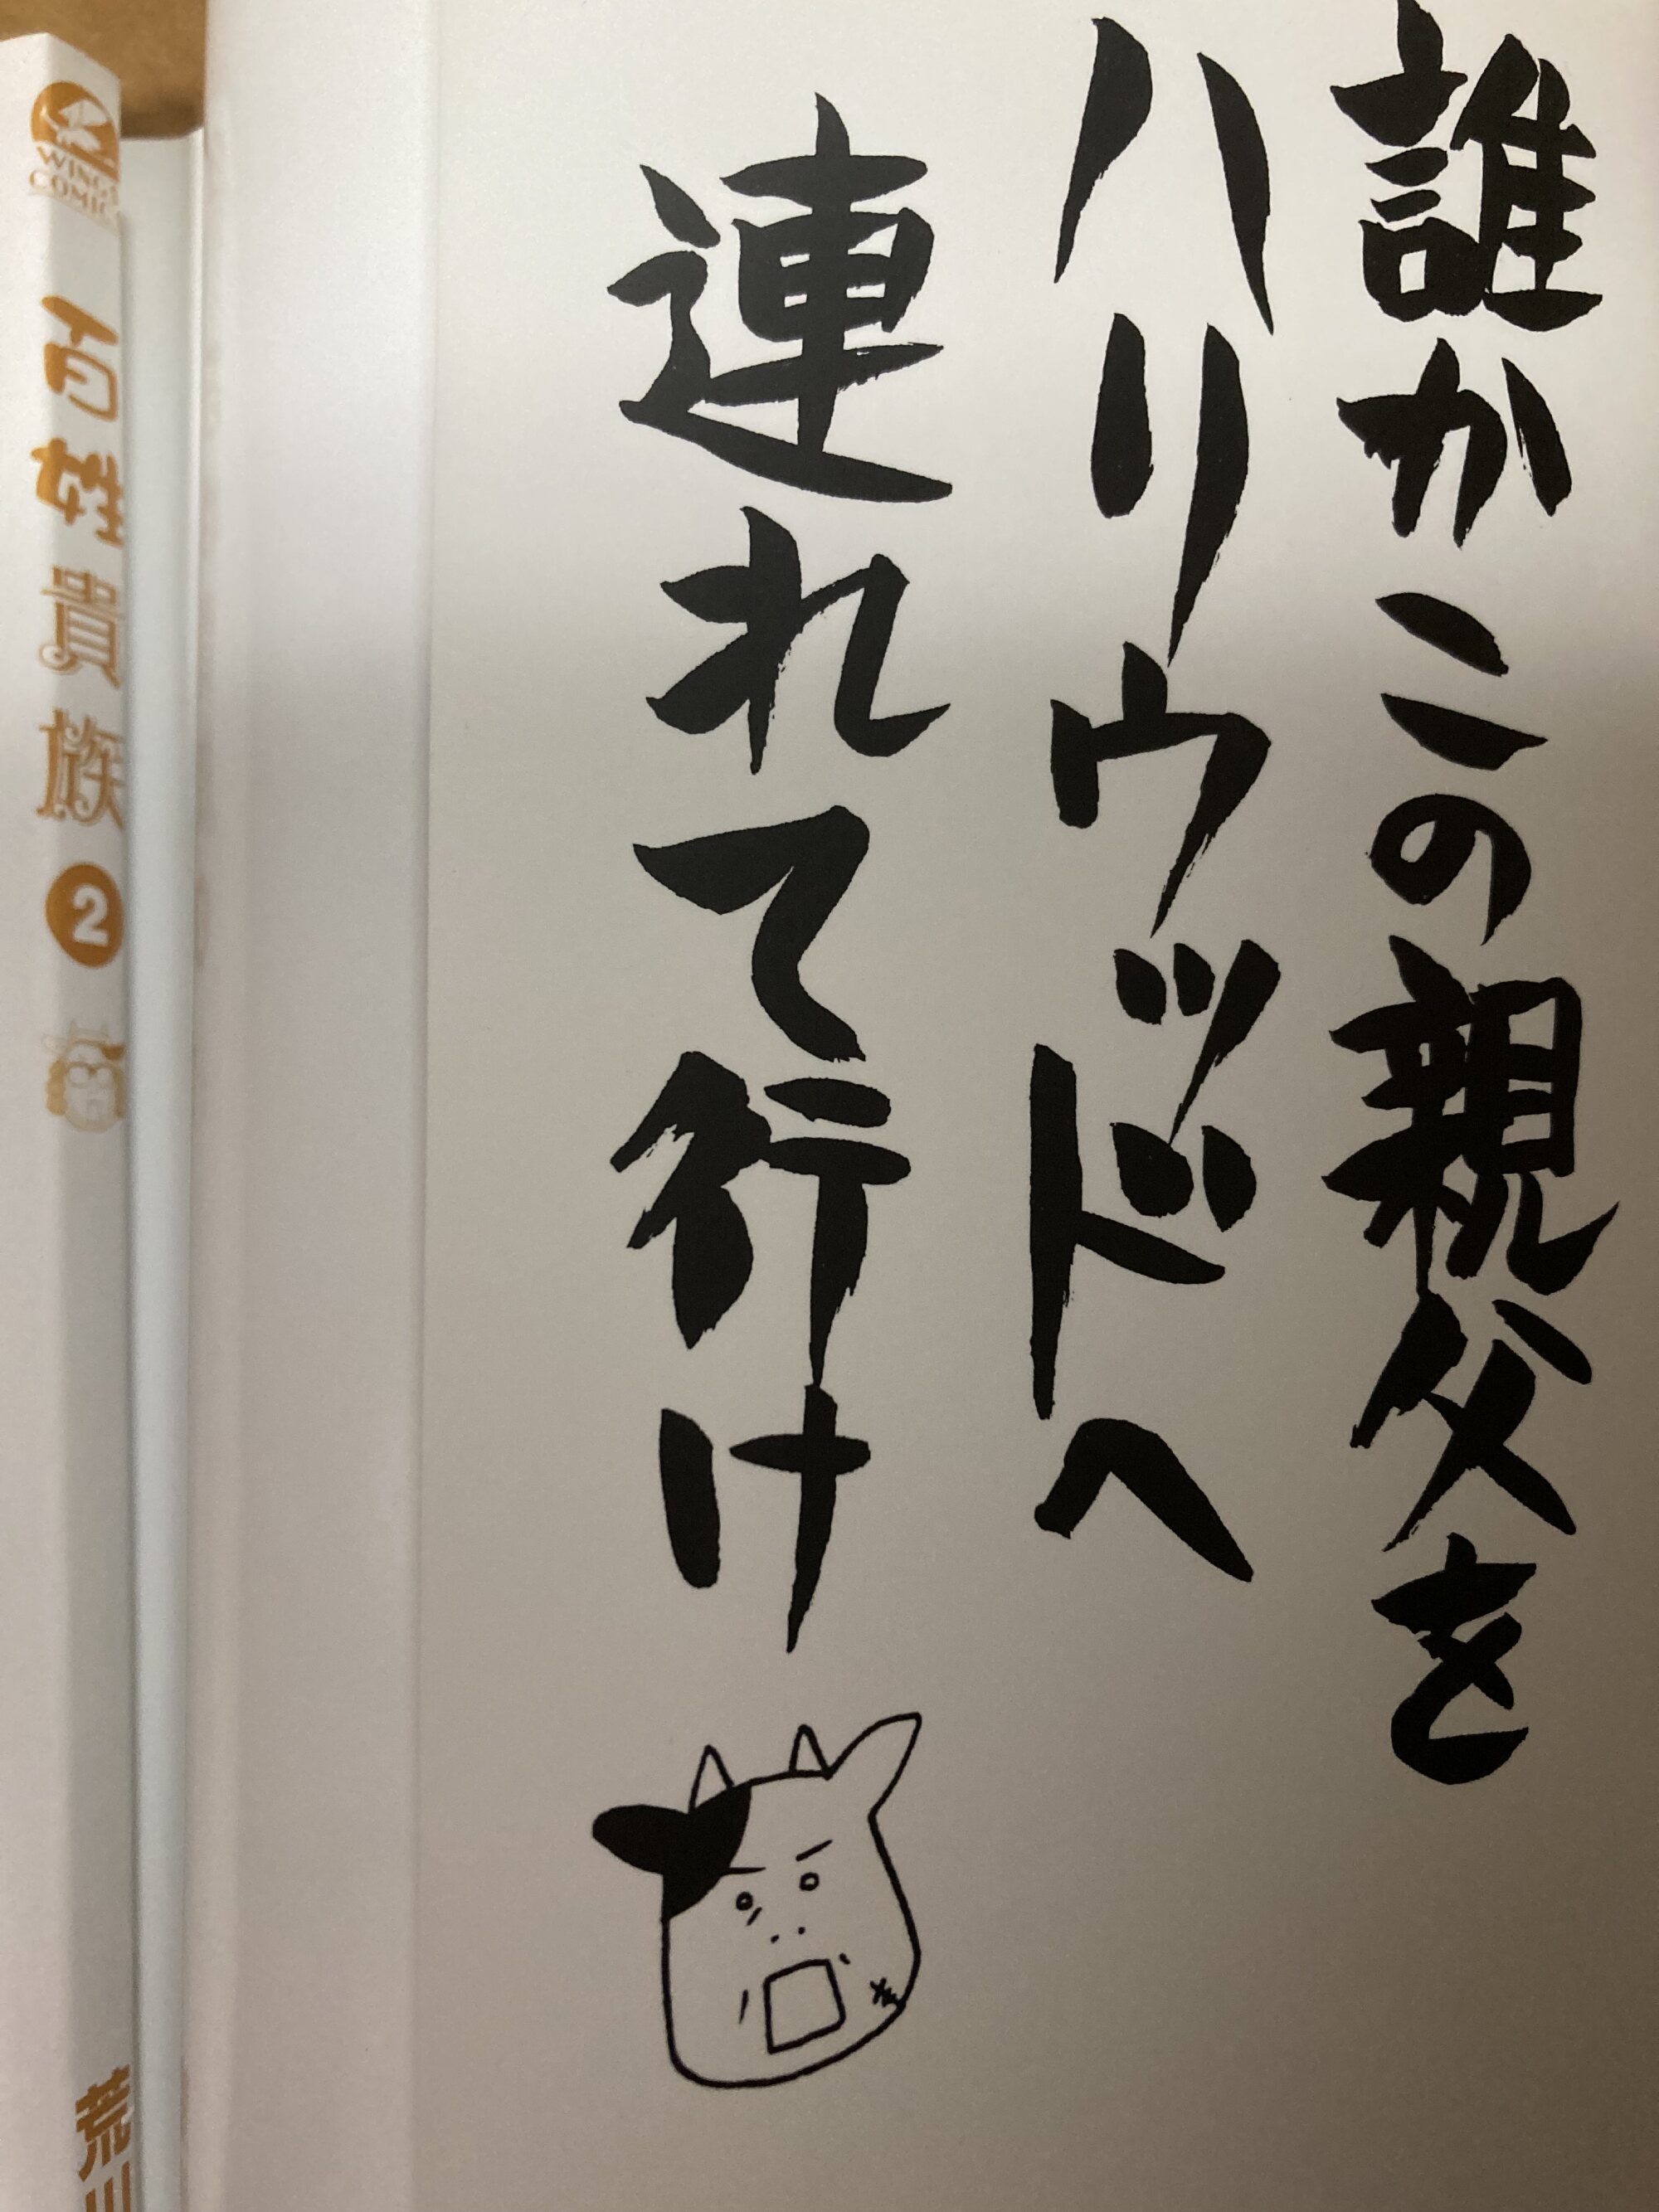 誰かこの親父を
ハリウッドへ
連れて行け
WINGS
COMIC
百姓貴族 2
荒川